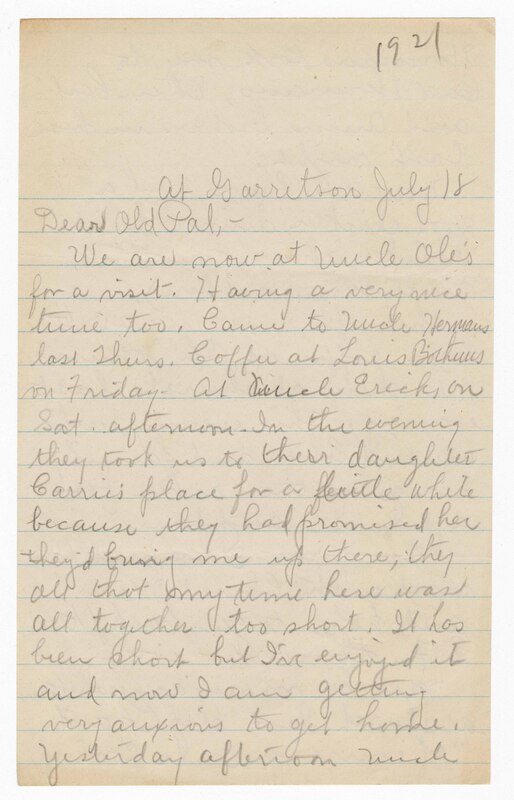 1921
At Garretson July 18
Dear Old Pal,-
We are now at Uncle Ole's
for a visit. Having a very nice
time too. Came to Uncle Hermans
last Thurs. Coffee at Louis Bothums
on Friday- At Uncle Ericks on
Sat. afternoon. In the evening
they took us to their daughter
Carries place for a little while
because they had promised her
they'd bring me up there, they
all that my time here was
all together too short. It has
been short but I've enjoyed it
and now I am getting
very anxious to get home.
Yesterday afternoon Uncle